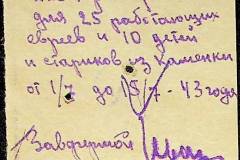 для 25 работающих
евреев и 10 детей
и стариков из Каменки
от 1/7 до 15/7 - 43 года
Завфермой